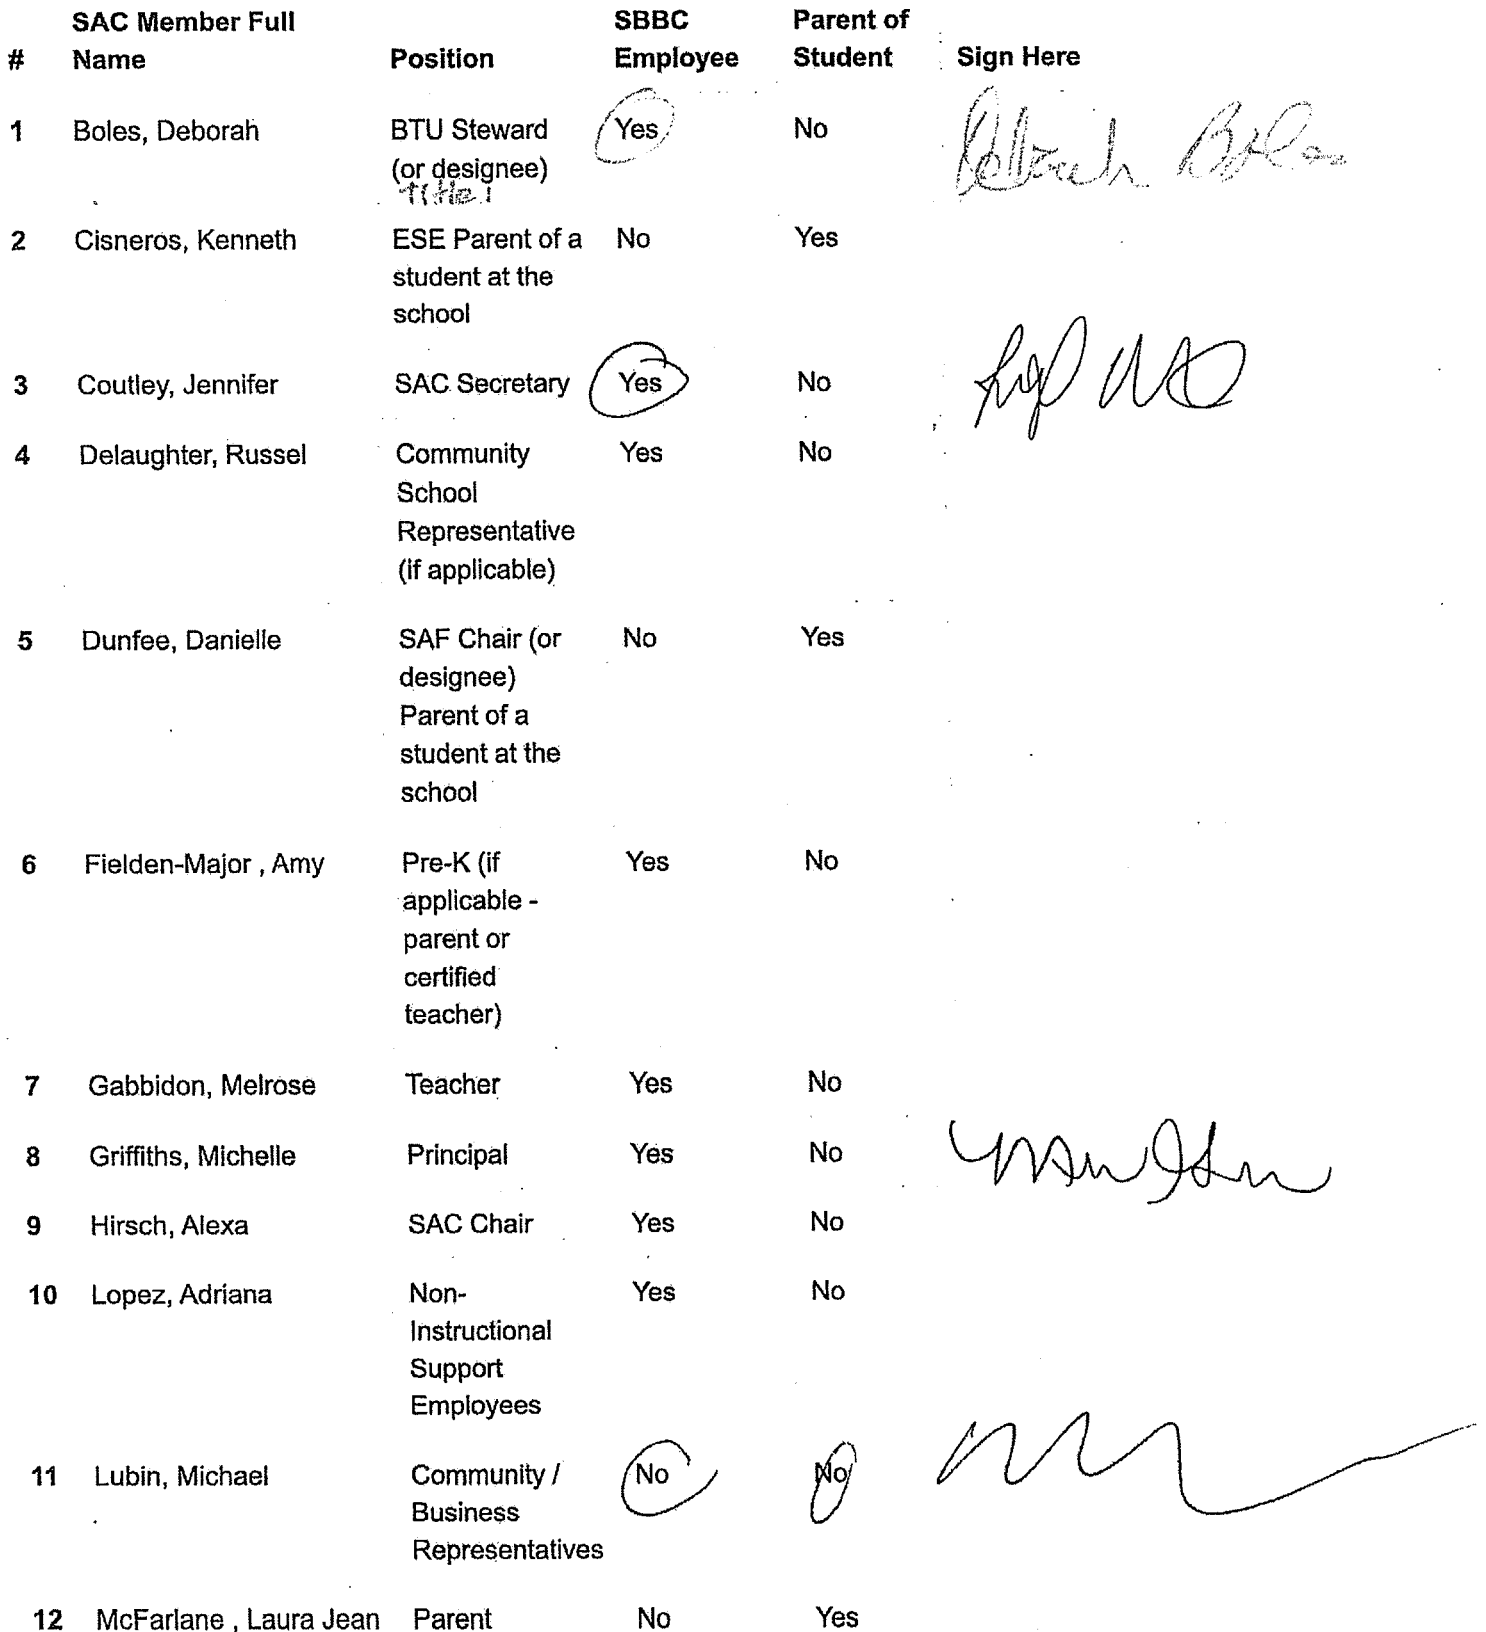 SAC Member Full SBBC Parent of
# Name Position Employee Student Sign Here
1 Boles, Deborah BTU Steward Yes No Deborah Boles
(or designee)
Title 1
2 Cisneros, Kenneth ESE Parent of a No Yes
student at the
school
3 Coutley, Jennifer SAC Secretary Yes No
4 Delaughter, Russel Community Yes No
School
Representative
(if applicable)
5 Dunfee, Danielle SAF Chair (or No Yes
designee)
Parent of a
student at the
school
6 Fielden-Major , Amy Pre-K (if Yes No
applicable -
parent or
certified
teacher)
7 Gabbidon, Melrose Teacher Yes No
8 Griffiths, Michelle Principal Yes No
9 Hirsch, Alexa SAC Chair Yes No
10 Lopez, Adriana Non- Yes No
Instructional
Support
Employees
11 Lubin, Michael Community / No No
Business
Representatives
12 McFarlane , Laura Jean Parent No Yes